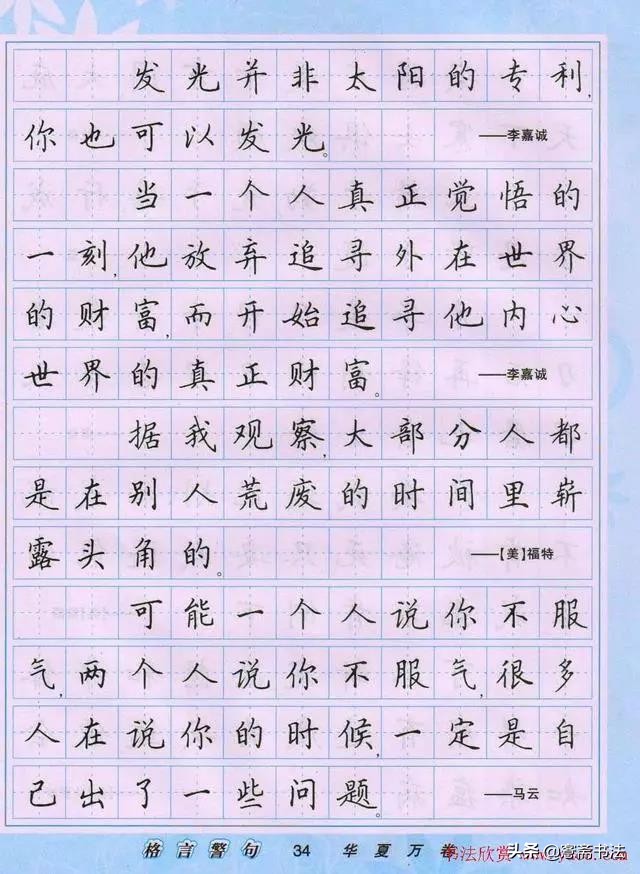 发光并非太阳的专利,
你也可以发光。 ——李嘉诚
当一个人真正觉悟的
一刻,他放弃追寻外在世界
的财富,而开始追寻他内心
世界的真正财富。 ——李嘉诚
据我观察,大部分人都
是在别人荒废的时间里崭
露头角的。 ——【美】福特
可能一个人说你不服
气,两个人说你不服气,很多
人在说你的时候,一定是自
己出了一些问题。 ——马云
格言警句 34 华夏万卷
书法欣赏
头条@鸾斋书法